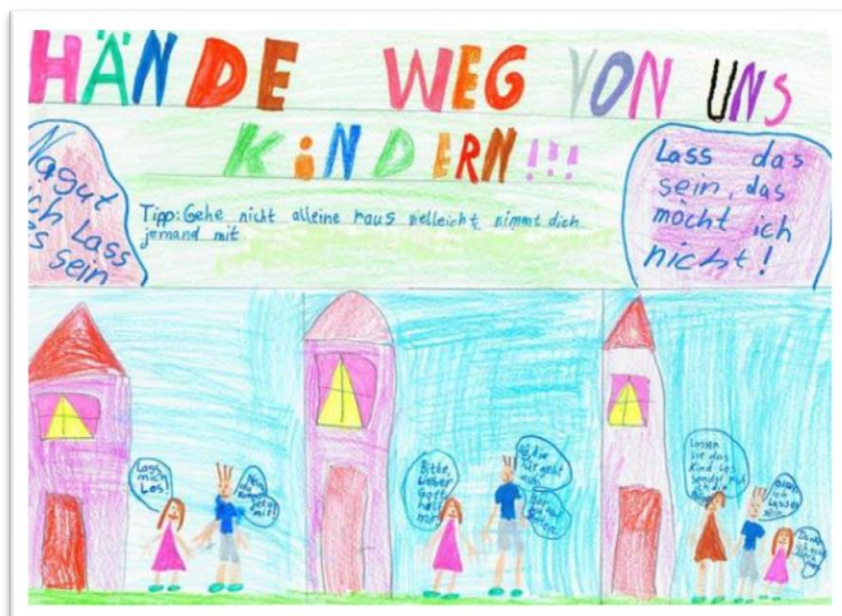 HÄNDE WEG VON UNS
KiNDERN!!!
Nagut
ich Lass
es sein
Tipp: Gehe nicht alleine raus vielleicht nimmt dich
jemand mit
Lass das
sein, das
möcht ich
nicht!
Lass
mich
Los!
Nein
du kommst
jetzt
mit!
Bitte,
Lieber
Gott
hilf
mir!
die
Tür geht
Lassen
Sie das
Kind Los
ich die
ich
Lass es
sein
Danke